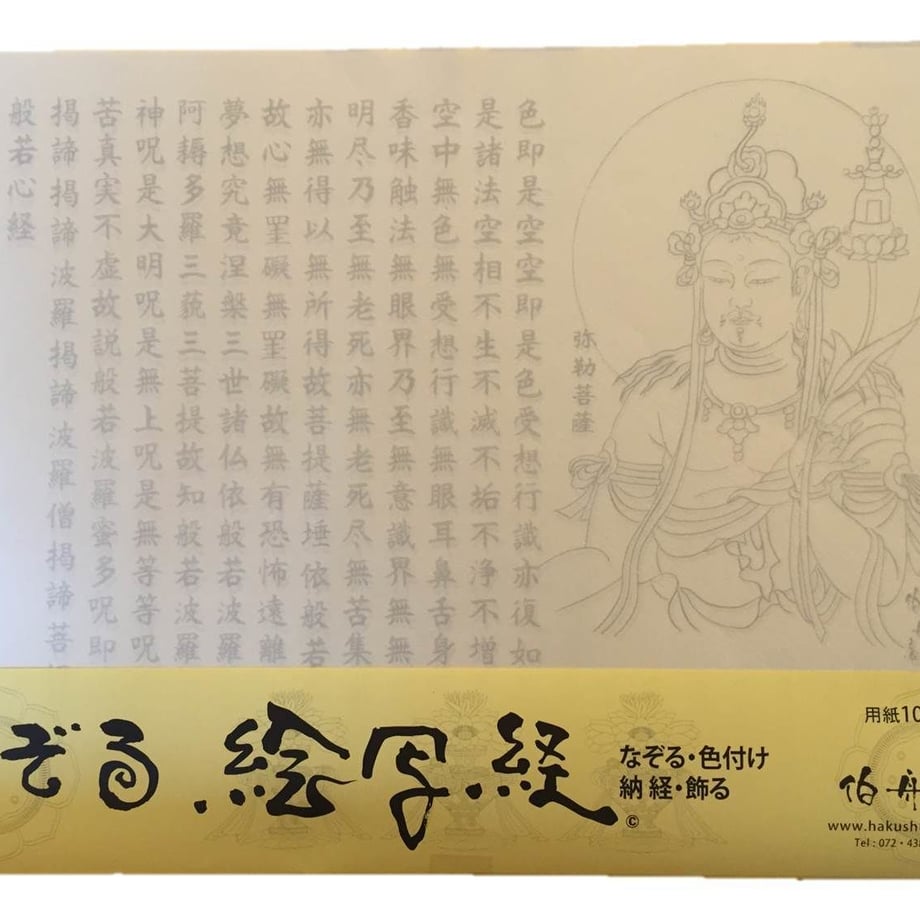 弥勒菩薩
色即是空空即是色受想行識亦復如
是諸法空相不生不滅不垢不浄不増
空中無色無受想行識無眼耳鼻舌身
香味触法無眼界乃至無意識界無無
明尽乃至無老死亦無老死尽無苦集
亦無得以無所得故菩提薩埵依般若
故心無罣礙無罣礙故無有恐怖遠離
夢想究竟涅槃三世諸仏依般若波羅
阿耨多羅三藐三菩提故知般若波羅
神呪是大明呪是無上呪是無等等呪
苦真実不虚故説般若波羅蜜多呪即
揭諦揭諦波羅揭諦波羅僧揭諦菩
般若心経
ぞる.絵写.経
©
なぞる・色付け
納経・飾る
用紙10
伯舟
www.hakush
Tel : 072・43